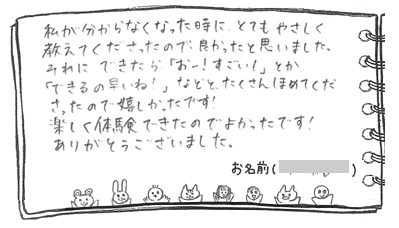 私が分からなくなった時に、とてもやさしく
教えてくださったので良かったと思いました。
それに できたら、「おー！すごい！」とか
「できるの早いね！」などと、たくさんほめてくだ
さったので嬉しかったです！
楽しく体験できたのでよかったです！
ありがとうございました。
お名前(　　　)